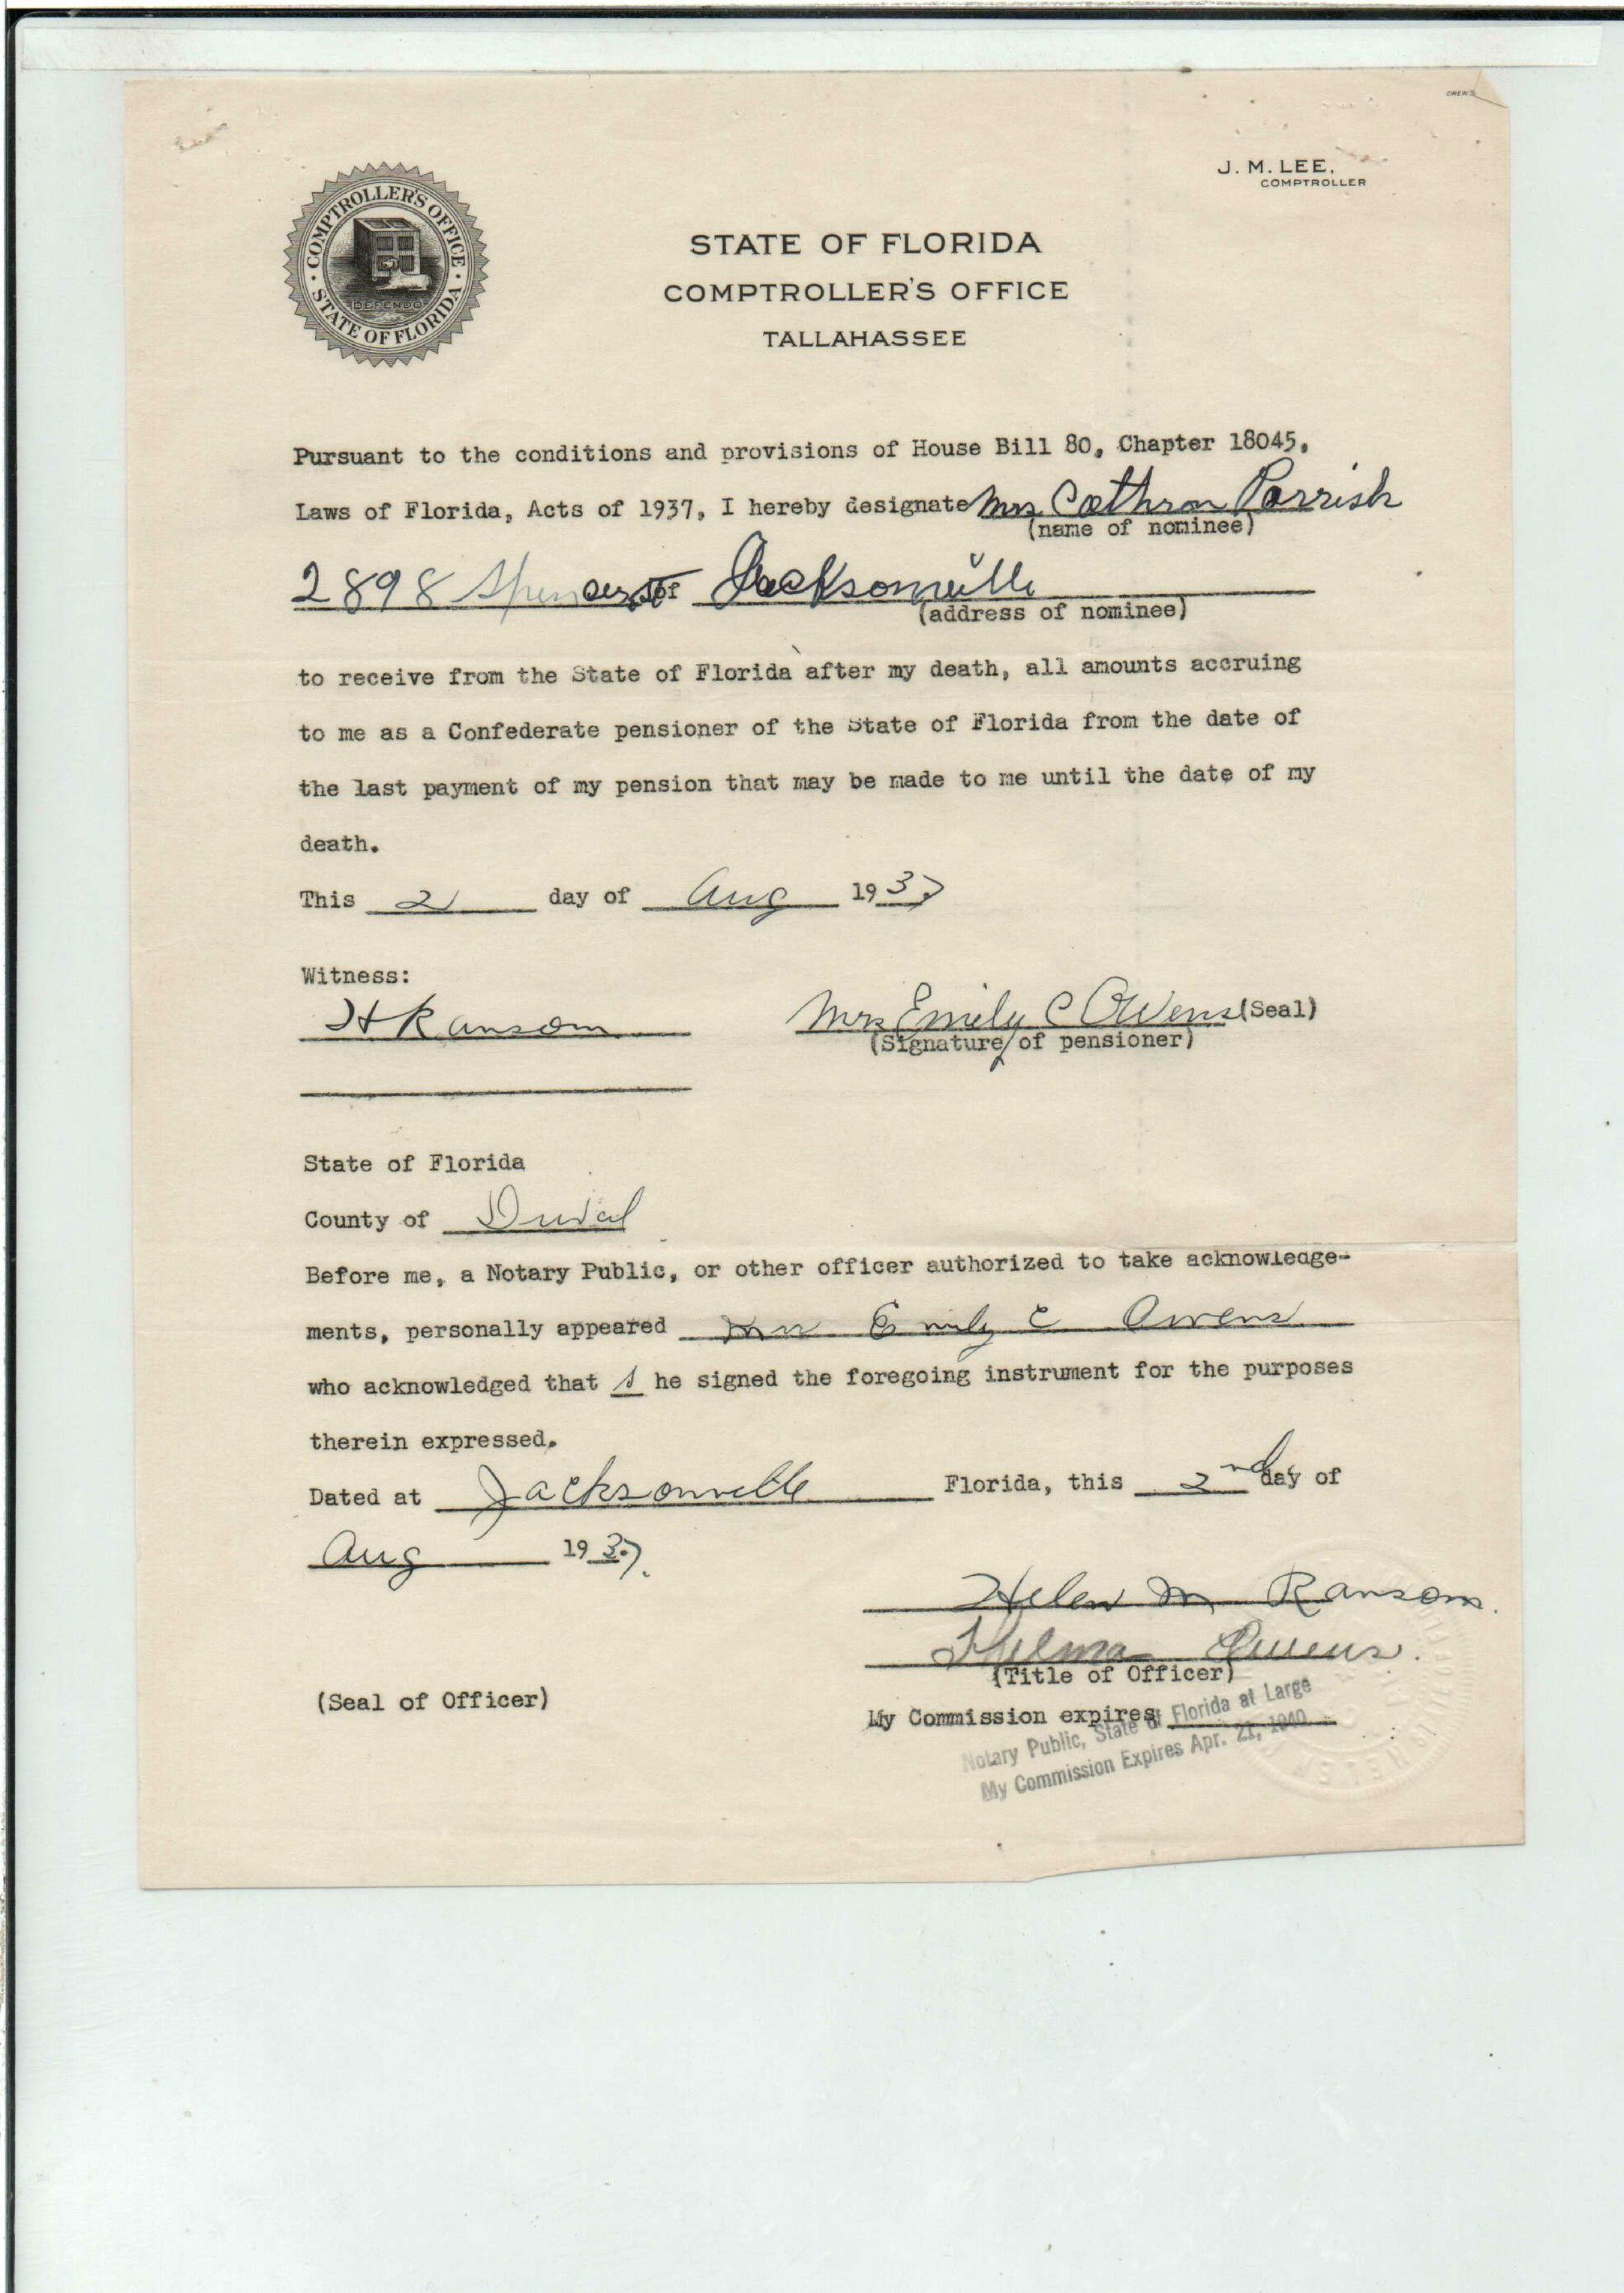 DREW'S
J. M. LEE,
COMPTROLLER
COMPTROLLER'S OFFICE · STATE OF FLORIDA ·
DEFENDO
STATE OF FLORIDA
COMPTROLLER'S OFFICE
TALLAHASSEE
Pursuant to the conditions and provisions of House Bill 80, Chapter 18045,
Laws of Florida, Acts of 1937, I hereby designate Mrs Cathron Parrish
(name of nominee)
2898 Spencer St of Jacksonville
(address of nominee)
to receive from the State of Florida after my death, all amounts accruing
to me as a Confederate pensioner of the State of Florida from the date of
the last payment of my pension that may be made to me until the date of my
death.
This 2 day of Aug 1937
Witness:
H Ransom
Mrs Emily C Owens (Seal)
(Signature of pensioner)
State of Florida
County of Duval
Before me, a Notary Public, or other officer authorized to take acknowledge-
ments, personally appeared Mrs Emily C Owens
who acknowledged that s he signed the foregoing instrument for the purposes
therein expressed.
Dated at Jacksonville Florida, this 2nd day of
Aug 1937.
Helen M Ransom.
Thelma Owens.
(Title of Officer)
(Seal of Officer)
My Commission expires
Notary Public, State of Florida at Large
My Commission Expires Apr. 21, 1940